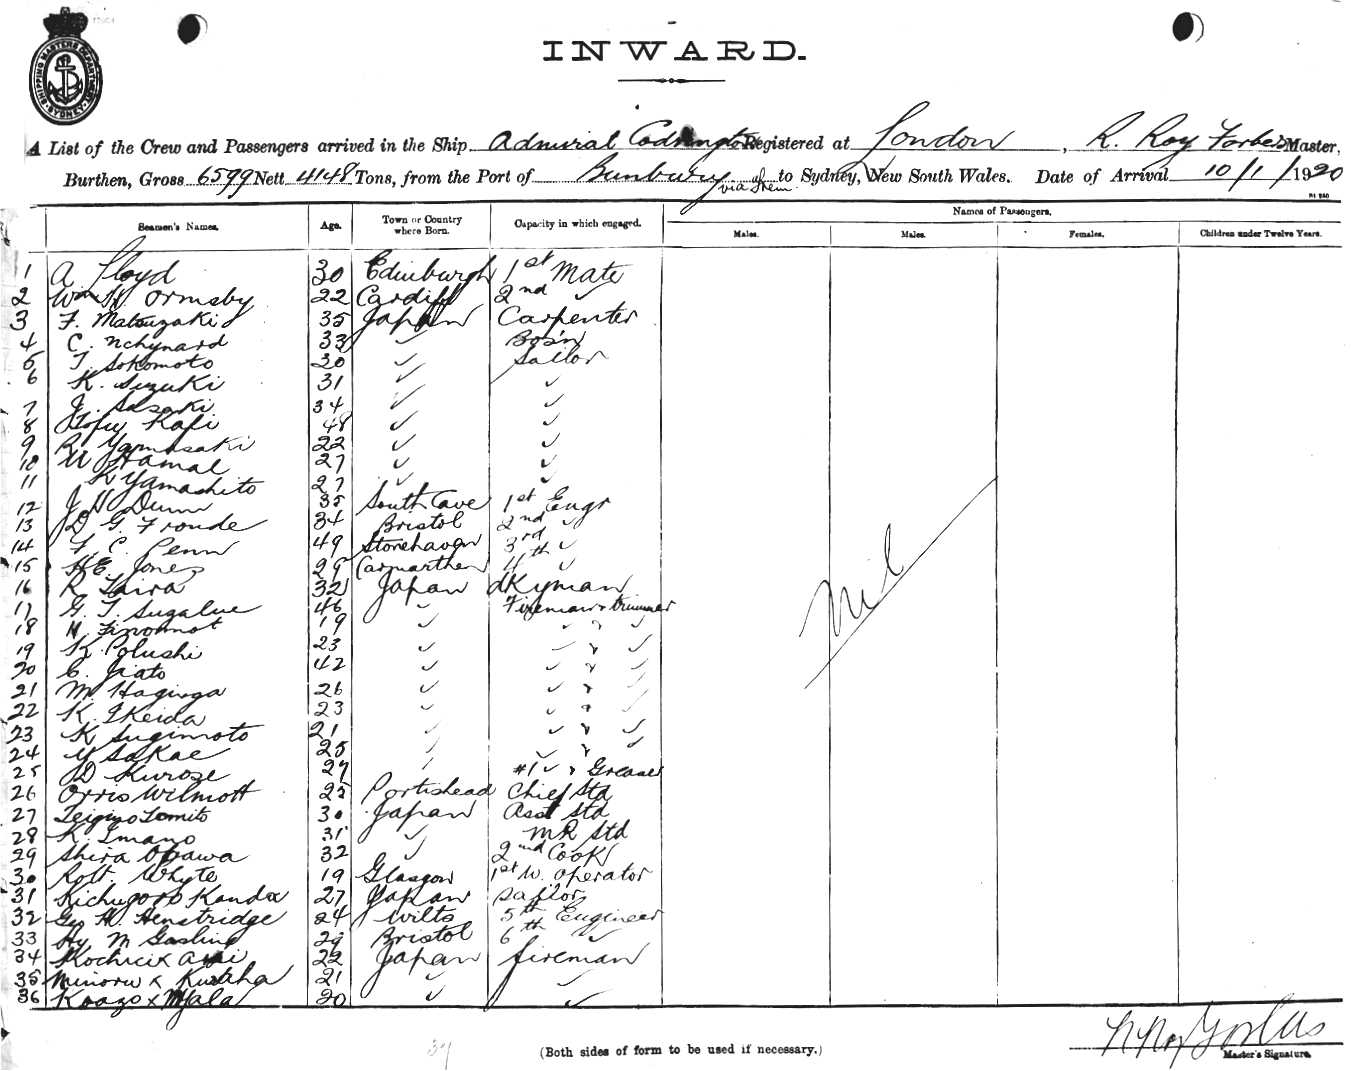 SHIPPING MASTERS DEPARTMENT SYDNEY
INWARD.
A List of the Crew and Passengers arrived in the Ship Admiral Codrington Registered at London, R. Roy Forbes Master,
Burthen, Gross 6599 Nett 4148 Tons, from the Port of Bunbury via to Sydney, New South Wales. Date of Arrival 10/1/1920
Seamen's Names. Age. Town or Country where Born. Capacity in which engaged. Names of Passengers.
Males. Males. Females. Children under Twelve Years.
1 A Lloyd 30 Edinburgh 1st Mate
2 Wm H Ormsby 22 Cardiff 2nd ✓
3 F. Matsuzaki 35 Japan Carpenter
4 C. 33 ✓ Bos'n
5 T. Sokomoto 30 ✓ Sailor
6 K. Suzuki 31 ✓ ✓
7 J. Sasaki 34 ✓ ✓
8 Kaji 48 ✓ ✓
9 R. Yamasaki 22 ✓ ✓
10 Hamal 27 ✓ ✓
11 K Yamashito 27 ✓ ✓
12 J H Dunn 35 South Cave 1st Engr
13 D G Froude 34 Bristol 2nd ✓
14 F. C. Penn 49 Stonehaven 3rd ✓
15 H E Jones 29 Carmarthen 4th ✓
16 R Taira 32 Japan dKyman
17 G. T. Sugalue 46 ✓ Fireman & trimmer
18 N. 19 ✓ ✓ " ✓
19 K. Polushi 23 ✓ ✓ " ✓
20 C. Jiato 42 ✓ ✓ " ✓
21 M. Hagiwga 26 ✓ ✓ " ✓
22 K. Ikeida 23 ✓ ✓ " ✓
23 K Sugimoto 21 ✓ ✓ " ✓
24 Y Sakae 25 ✓ ✓ " ✓
25 D Kurose 27 ✓ #1 ✓ " Greaser
26 Orris Wilmott 25 Portishead Chief Std
27 Teigiyo Tomito 30 Japan Asst Std
28 K. Imano 31 ✓ MR Std
29 Shira Ogawa 32 ✓ 2nd Cook
30 Robt Whyte 19 Glasgow 1st W. operator
31 Kichugoro Kanda 27 Japan Sailor
32 Geo H. Henstridge 24 Wilts 5th Engineer
33 Hy M Gosling 29 Bristol 6th ✓
34 Kochici x 22 Japan fireman
35 Minoru x 21 ✓ ✓
36 Koazo x 20 ✓ ✓
Nil
39
(Both sides of form to be used if necessary.)
R Roy Forbes
Master's Signature.